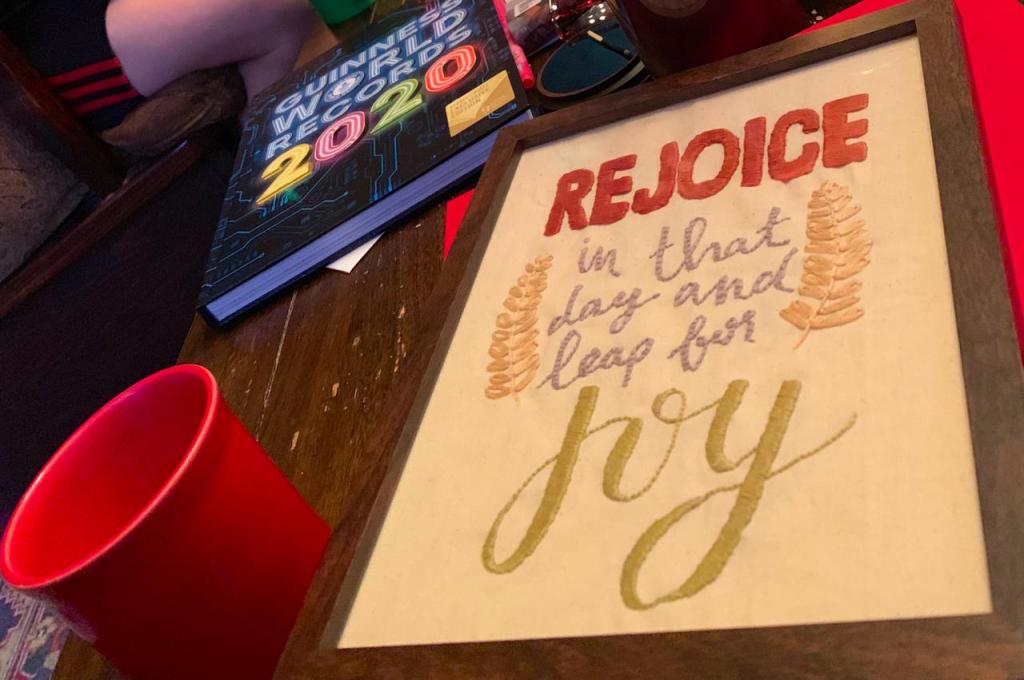 GUINNESS
WORLD
RECORDS
2020
REJOICE
in that
day and
leap for
joy